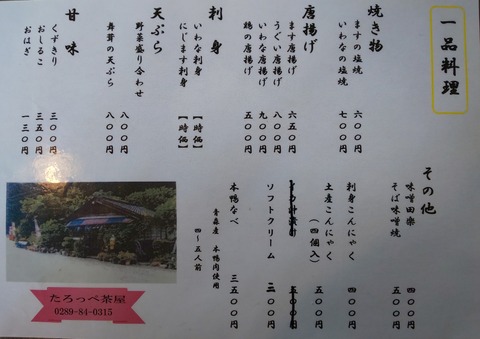 一品料理
焼き物
ますの塩焼 六〇〇円
いわなの塩焼 七〇〇円
唐揚げ
ます唐揚げ 六五〇円
うぐい唐揚げ 八〇〇円
いわな唐揚げ 九〇〇円
鶏の唐揚げ 五〇〇円
刺身
いわな刺身 【時価】
にじます刺身 【時価】
天ぷら
野菜盛り合わせ 八〇〇円
舞茸の天ぷら 八〇〇円
甘味
くずきり 三〇〇円
おしるこ 三五〇円
おはぎ 一三〇円
その他
味噌田楽 四〇〇円
そば味噌焼 五〇〇円
刺身こんにゃく 四〇〇円
土産こんにゃく (四個入) 五〇〇円
五〇〇円
ソフトクリーム 三〇〇円
本鴨なべ 三五〇〇円
青森産 本鴨肉使用
四~五人前
たろっぺ茶屋
0289-84-0315